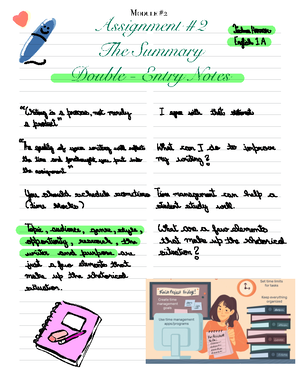 Module #2
Assignment #2
The Summary
Double - Entry Notes
English 1A
"Writing is a process, not merely
a product"
I agree with that
"The quality of your writing will reflect
the time and you put into
the assignment"
What can I do to improve
my writing?
You should schedule sometime
(time blocks)
Time management can help a
student study well.
Topic, audience, genre, style,
opportunity, research, the
writer and purpose are
just a few elements that
make up the rhetorical
situation.
What are a few elements
that make up the rhetorical
situation?
Set time limits
for tasks
Keep everything
organized
Use time management
apps/programs